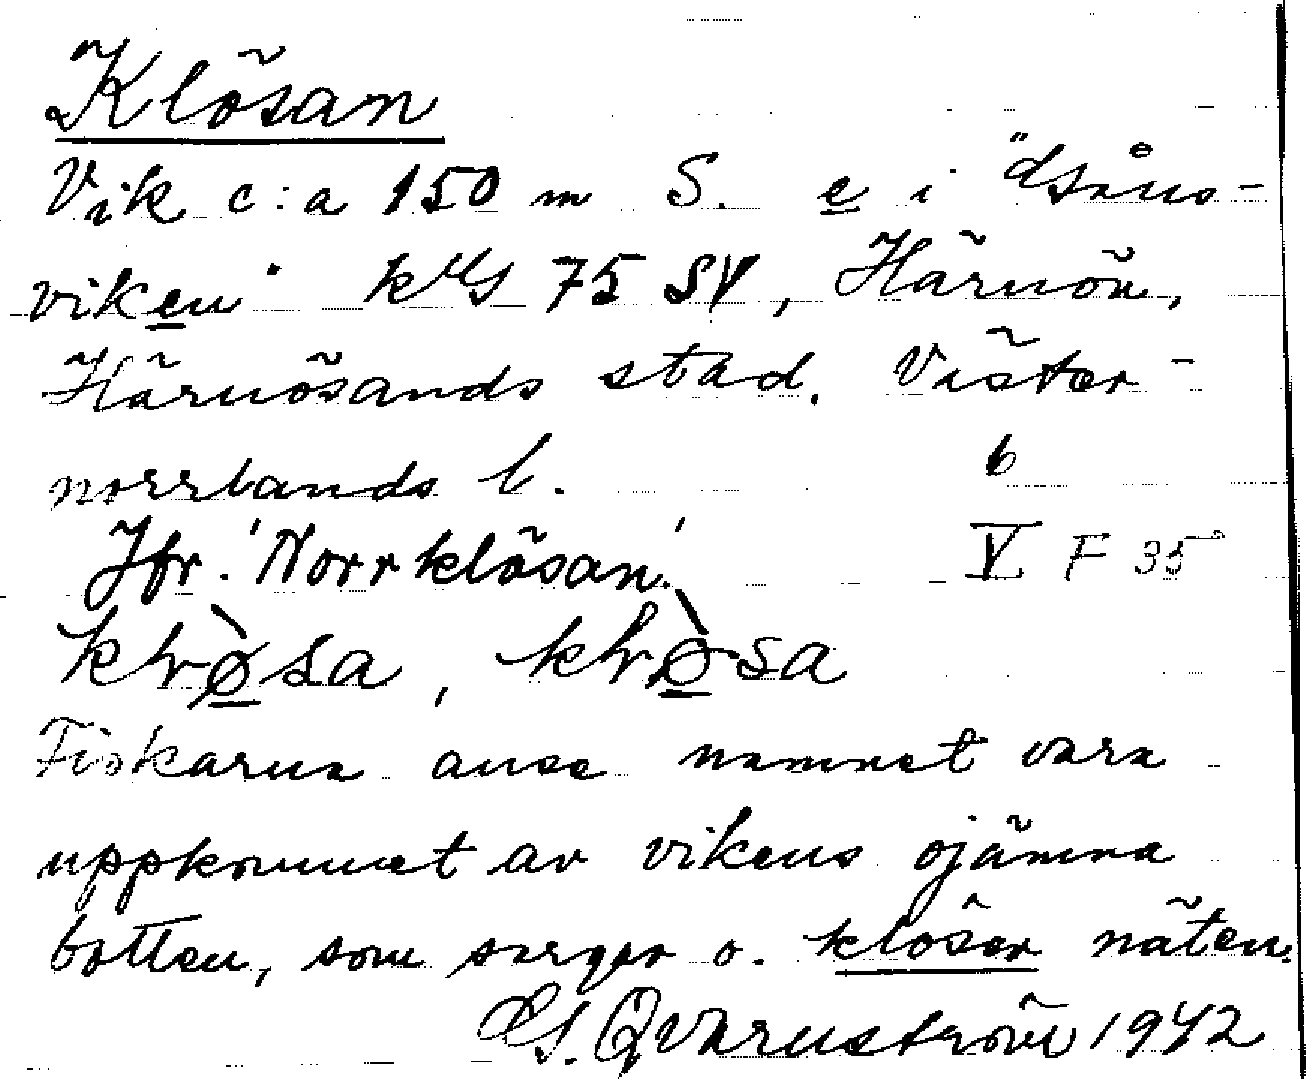 Klösan
Vik c:a 150 m S. e i "
viken" 75 SV, Härnön,
Härnösands stad. Väster-
norrlands l. b
Jfr. 'Norrklösan.' V F 35
Fiskarna anse namnet vara
uppkommet av vikens ojämna
botten, som sarger o. klöser näten.
S. Qvarnström 1942